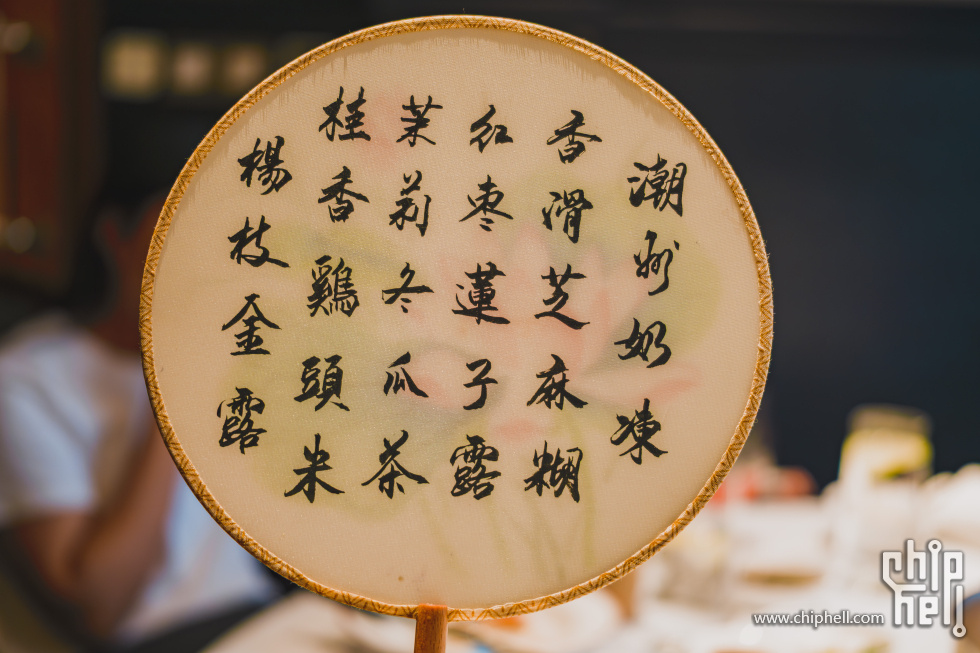 潮州奶凍
香滑芝麻糊
红枣蓮子露
茉莉冬瓜茶
桂香鷄頭米
楊枝金露
chip hell
www.chiphell.com